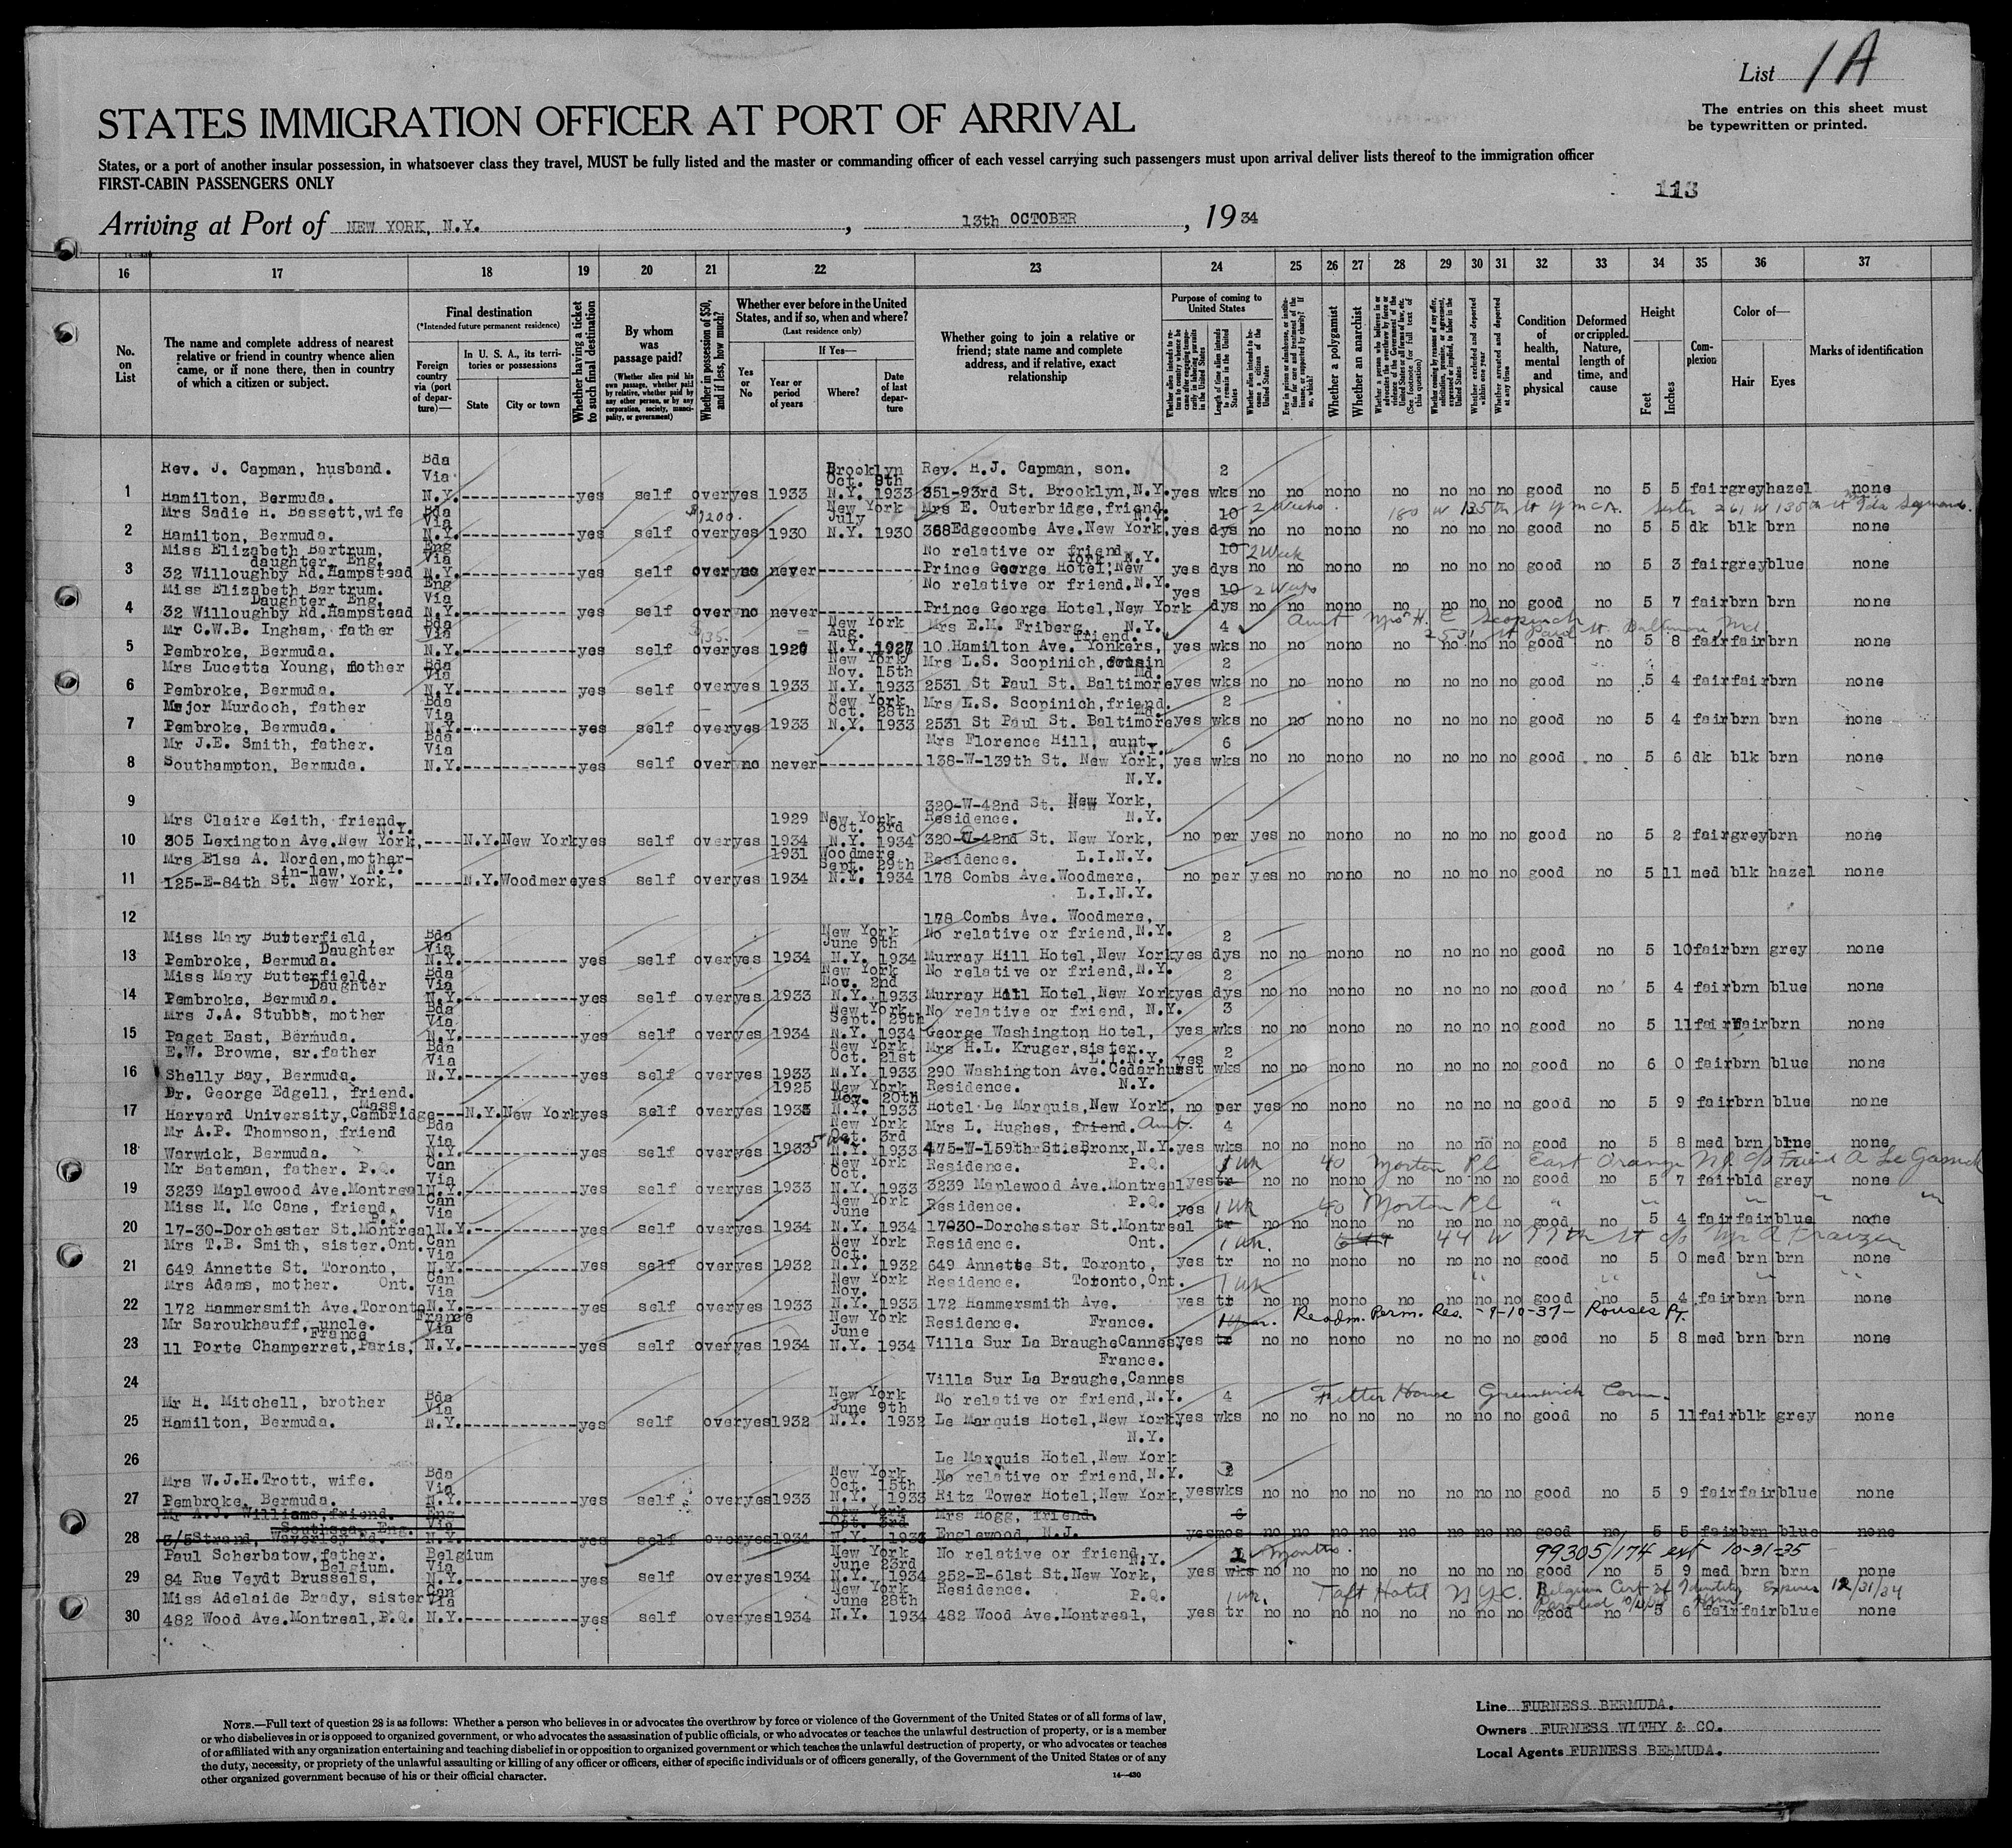 List 1A
The entries on this sheet must
be typewritten or printed.
STATES IMMIGRATION OFFICER AT PORT OF ARRIVAL
States, or a port of another insular possession, in whatsoever class they travel, MUST be fully listed and the master or commanding officer of each vessel carrying such passengers must upon arrival deliver lists thereof to the immigration officer
FIRST-CABIN PASSENGERS ONLY
113
Arriving at Port of NEW YORK, N.Y. , 13th OCTOBER , 1934
16 17 18 19 20 21 22 23 24 25 26 27 28 29 30 31 32 33 34 35 36 37
No. on List
The name and complete address of nearest relative or friend in country whence alien came, or if none there, then in country of which a citizen or subject.
Final destination
(*Intended future permanent residence)
Foreign country via (port of departure)—
In U. S. A., its territories or possessions
State
City or town
Whether having a ticket to such final destination
By whom was passage paid?
(Whether alien paid his own passage, whether paid by relative, whether paid by any other person, or by any corporation, society, municipality, or government)
Whether in possession of $50, and if less, how much?
Whether ever before in the United States, and if so, when and where?
(Last residence only)
Yes or No
If Yes—
Year or period of years
Where?
Date of last departure
Whether going to join a relative or friend; state name and complete address, and if relative, exact relationship
Purpose of coming to United States
Length of time alien intends to remain in the United States
Whether alien intends to become a citizen of the United States
Whether a polygamist
Whether an anarchist
Condition of health, mental and physical
Deformed or crippled. Nature, length of time, and cause
Height
Feet
Inches
Complexion
Color of—
Hair
Eyes
Marks of identification
Rev. J. Capman, husband. Bda Via Brooklyn Oct. 9th Rev. H.J. Capman, son. 2
1 Hamilton, Bermuda. N.Y. yes self over yes 1933 N.Y. 1933 351-93rd St. Brooklyn, N.Y. yes wks no no no no no no no no good no 5 5 fair grey hazel none
Mrs Sadie H. Bassett, wife Bda Via $1200. New York July Mrs E. Outerbridge, friend. N.Y. 10 2 Weeks 180 W 135th St YMCA. Sister 261 W 135th St
2 Hamilton, Bermuda. N.Y. yes self over yes 1930 N.Y. 1930 368 Edgecombe Ave. New York, yes dys no no no no no no no no good no 5 5 dk blk brn none
Miss Elizabeth Bartrum, daughter, Eng. Eng Via No relative or friend York, N.Y. 10 2 Week
3 32 Willoughby Rd. Hampstead N.Y. yes self over no never Prince George Hotel, New yes dys no no no no no no no no good no 5 3 fair grey blue none
Miss Elizabeth Bartrum. Daughter, Eng. Eng Via No relative or friend. N.Y. yes 10 2 Weeks
4 32 Willoughby Rd. Hampstead N.Y. yes self over no never Prince George Hotel, New York dys no no no no no no no no good no 5 7 fair brn brn none
Mr C.W.B. Ingham, father Bda Via $135. New York Aug. Mrs E.M. Friberg, friend. N.Y. 4 Aunt Mrs H. C Scopinich 2531 St Paul St. Baltimore, Md.
5 Pembroke, Bermuda. N.Y. yes self over yes N.Y. 1927 10 Hamilton Ave. Yonkers, yes wks no no no no no no no no good no 5 8 fair fair brn none
Mrs Lucetta Young, mother Bda Via New York Nov. 15th Mrs L.S. Scopinich, cousin Md. 2
6 Pembroke, Bermuda. N.Y. yes self over yes 1933 N.Y. 1933 2531 St Paul St. Baltimore yes wks no no no no no no no no good no 5 4 fair fair brn none
Major Murdoch, father Bda Via New York Oct. 28th Mrs L.S. Scopinich, friend. Md. 2
7 Pembroke, Bermuda. N.Y. yes self over yes 1933 N.Y. 1933 2531 St Paul St. Baltimore yes wks no no no no no no no no good no 5 4 fair brn brn none
Mr J.E. Smith, father. Bda Via Mrs Florence Hill, aunt N.Y. 6
8 Southampton, Bermuda. N.Y. yes self over no never 138-W-139th St. New York, yes wks no no no no no no no no good no 5 6 dk blk brn none
N.Y.
9 320-W-42nd St. New York,
Mrs Claire Keith, friend, N.Y. 1929 New York Oct. 3rd Residence. N.Y.
10 305 Lexington Ave. New York, N.Y. New York yes self over yes 1934 N.Y. 1934 320-W-42nd St. New York, no per yes no no no no no no no good no 5 2 fair grey brn none
Mrs Elsa A. Norden, mother-in-law, N.Y. 1931 Woodmere Sept. 29th Residence. L.I.N.Y.
11 125-E-84th St. New York, N.Y. Woodmere yes self over yes 1934 N.Y. 1934 178 Combs Ave. Woodmere, no per yes no no no no no no no good no 5 11 med blk hazel none
L.I.N.Y.
12 178 Combs Ave. Woodmere,
Miss Mary Butterfield, Daughter Bda Via New York June 9th No relative or friend, N.Y. 2
13 Pembroke, Bermuda. N.Y. yes self over yes 1934 N.Y. 1934 Murray Hill Hotel, New York yes dys no no no no no no no no good no 5 10 fair brn grey none
Miss Mary Butterfield, Daughter Bda Via New York Nov. 2nd No relative or friend, N.Y. 2
14 Pembroke, Bermuda. N.Y. yes self over yes 1933 N.Y. 1933 Murray Hill Hotel, New York yes dys no no no no no no no no good no 5 4 fair brn blue none
Mrs J.A. Stubbs, mother Bda Via New York Sept. 29th No relative or friend, N.Y. 3
15 Paget East, Bermuda. N.Y. yes self over yes 1934 N.Y. 1934 George Washington Hotel, yes wks no no no no no no no no good no 5 11 fair fair brn none
E.W. Browne, sr. father Bda Via New York Oct. 21st Mrs H.L. Kruger, sister. L.I.N.Y. yes 2
16 Shelly Bay, Bermuda. N.Y. yes self over yes 1933 N.Y. 1933 290 Washington Ave. Cedarhurst wks no no no no no no no no good no 6 0 fair brn blue none
Dr. George Edgell, friend. Mass 1925 New York Nov. 20th Residence. N.Y.
17 Harvard University, Cambridge N.Y. New York yes self over yes N.Y. 1933 Hotel Le Marquis, New York, no per yes no no no no no no no good no 5 9 fair brn blue none
Mr A.P. Thompson, friend Bda Via New York Oct. 3rd Mrs L. Hughes, friend. Aunt. 4
18 Warwick, Bermuda. N.Y. yes self over yes 1933 N.Y. 1933 475-W-159th St. Bronx, N.Y. yes wks no no no no no no no no good no 5 8 med brn blue none
Mr Bateman, father. P.Q. Can Via New York Oct. Residence. P.Q. 1 Wk 40 Morton Pl East Orange NJ. c/o Friend
19 3239 Maplewood Ave. Montreal N.Y. yes self over yes 1933 N.Y. 1933 3239 Maplewood Ave. Montreal yes tr no no no no no no no no good no 5 7 fair bld grey none
Miss M. Mc Cane, friend, P.Q. Can Via New York June Residence. P.Q. yes 1 Wk 40 Morton Pl " " " " "
20 17-30-Dorchester St. Montreal N.Y. yes self over yes 1934 N.Y. 1934 17030-Dorchester St. Montreal tr no no no no no no no no good no 5 4 fair fair blue none
Mrs T.B. Smith, sister. Ont. Can Via New York Oct. Residence. Ont. 1 Wk. 44 W 77th St c/o Mr A
21 649 Annette St. Toronto, N.Y. yes self over yes 1932 N.Y. 1932 649 Annette St. Toronto, yes tr no no no no no no no no good no 5 0 med brn brn none
Mrs Adams, mother. Ont. Can Via New York Nov. Residence. Toronto, Ont. 1 Wk " " " "
22 172 Hammersmith Ave. Toronto N.Y. yes self over yes 1933 N.Y. 1933 172 Hammersmith Ave. yes tr no no no no no no no no good no 5 4 fair brn brn none
Mr Saroukhauff, uncle. France France Via New York June Residence. France. Readm. Perm. Res. -9-10-37- Rouses Pt.
23 11 Porte Champerret, Paris, N.Y. yes self over yes 1934 N.Y. 1934 Villa Sur La Braughe Cannes, yes tr no no no no no no no no good no 5 8 med brn brn none
France.
24 Villa Sur La Braughe, Cannes
Mr H. Mitchell, brother Bda Via New York June 9th No relative or friend, N.Y. 4 Greenwich Conn.
25 Hamilton, Bermuda. N.Y. yes self over yes 1932 N.Y. 1932 Le Marquis Hotel, New York, yes wks no no no no no no no no good no 5 11 fair blk grey none
N.Y.
26 Le Marquis Hotel, New York
Mrs W.J.H. Trott, wife. Bda Via New York Oct. 15th No relative or friend, N.Y.
27 Pembroke, Bermuda. N.Y. yes self over yes 1933 N.Y. 1933 Ritz Tower Hotel, New York, yes wks no no no no no no no no good no 5 9 fair fair blue none
Mr A.J. Williams, friend. Southsea, Eng. Eng. Via New York Oct. 3rd Mrs Hogg, friend. 6
28 3/5 Strand, Waverley Rd. N.Y. yes self over yes 1934 N.Y. Englewood, N.J. yes mos no no no no no no no no good no 5 5 fair brn blue none
Paul Scherbatow, father. Belgium. Belgium Via New York June 23rd No relative or friend, N.Y. Months. 99305/174 ext 10-31-35
29 84 Rue Veydt Brussels, N.Y. yes self over yes 1934 N.Y. 1934 252-E-61st St. New York, yes wks no no no no no no no no good no 5 9 med brn brn none
Miss Adelaide Brady, sister Can Via New York June 28th Residence. P.Q. 1 Wk. Taft Hotel N.Y.C. Belgium Cert of Identity Expires 12/31/34
30 482 Wood Ave. Montreal, P.Q. N.Y. yes self over yes 1934 N.Y. 1934 482 Wood Ave. Montreal, yes tr no no no no no no no no good no 5 6 fair fair blue none
NOTE.—Full text of question 28 is as follows: Whether a person who believes in or advocates the overthrow by force or violence of the Government of the United States or of all forms of law,
or who disbelieves in or is opposed to organized government, or who advocates the assassination of public officials, or who advocates or teaches the unlawful destruction of property, or is a member
of or affiliated with any organization entertaining and teaching disbelief in or opposition to organized government or which teaches the unlawful destruction of property, or who advocates or teaches
the duty, necessity, or propriety of the unlawful assaulting or killing of any officer or officers, either of specific individuals or of officers generally, of the Government of the United States or of any
other organized government because of his or their official character.
14—430
Line FURNESS BERMUDA.
Owners FURNESS WITHY & CO.
Local Agents FURNESS BERMUDA.